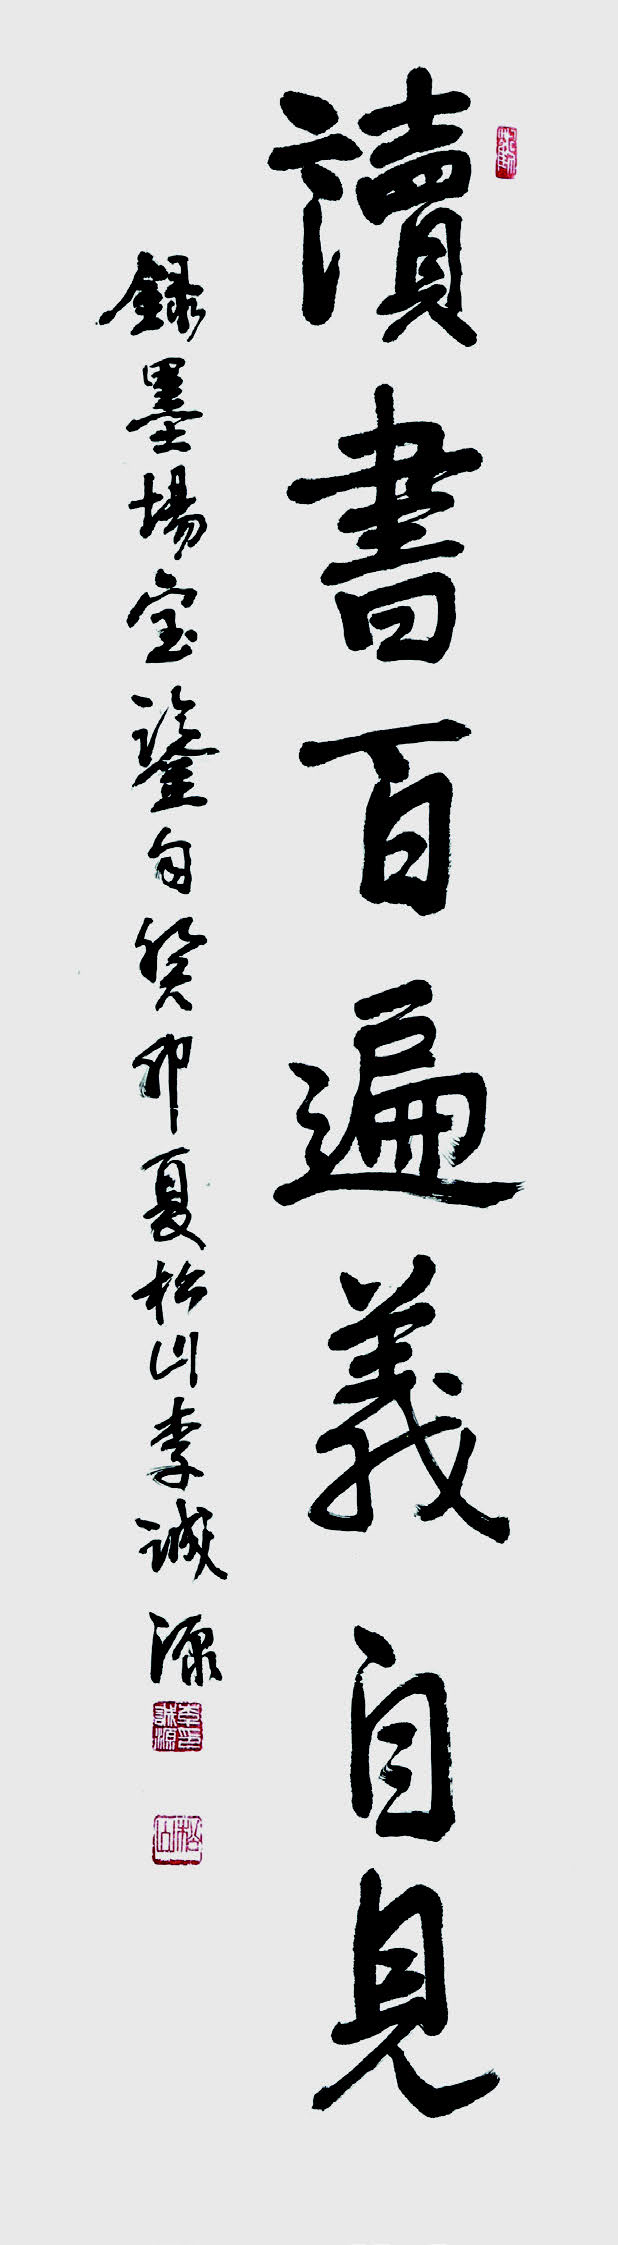 讀書百遍義自見
録墨場宝鑒句癸卯夏松山李誠源
李印誠源
松山